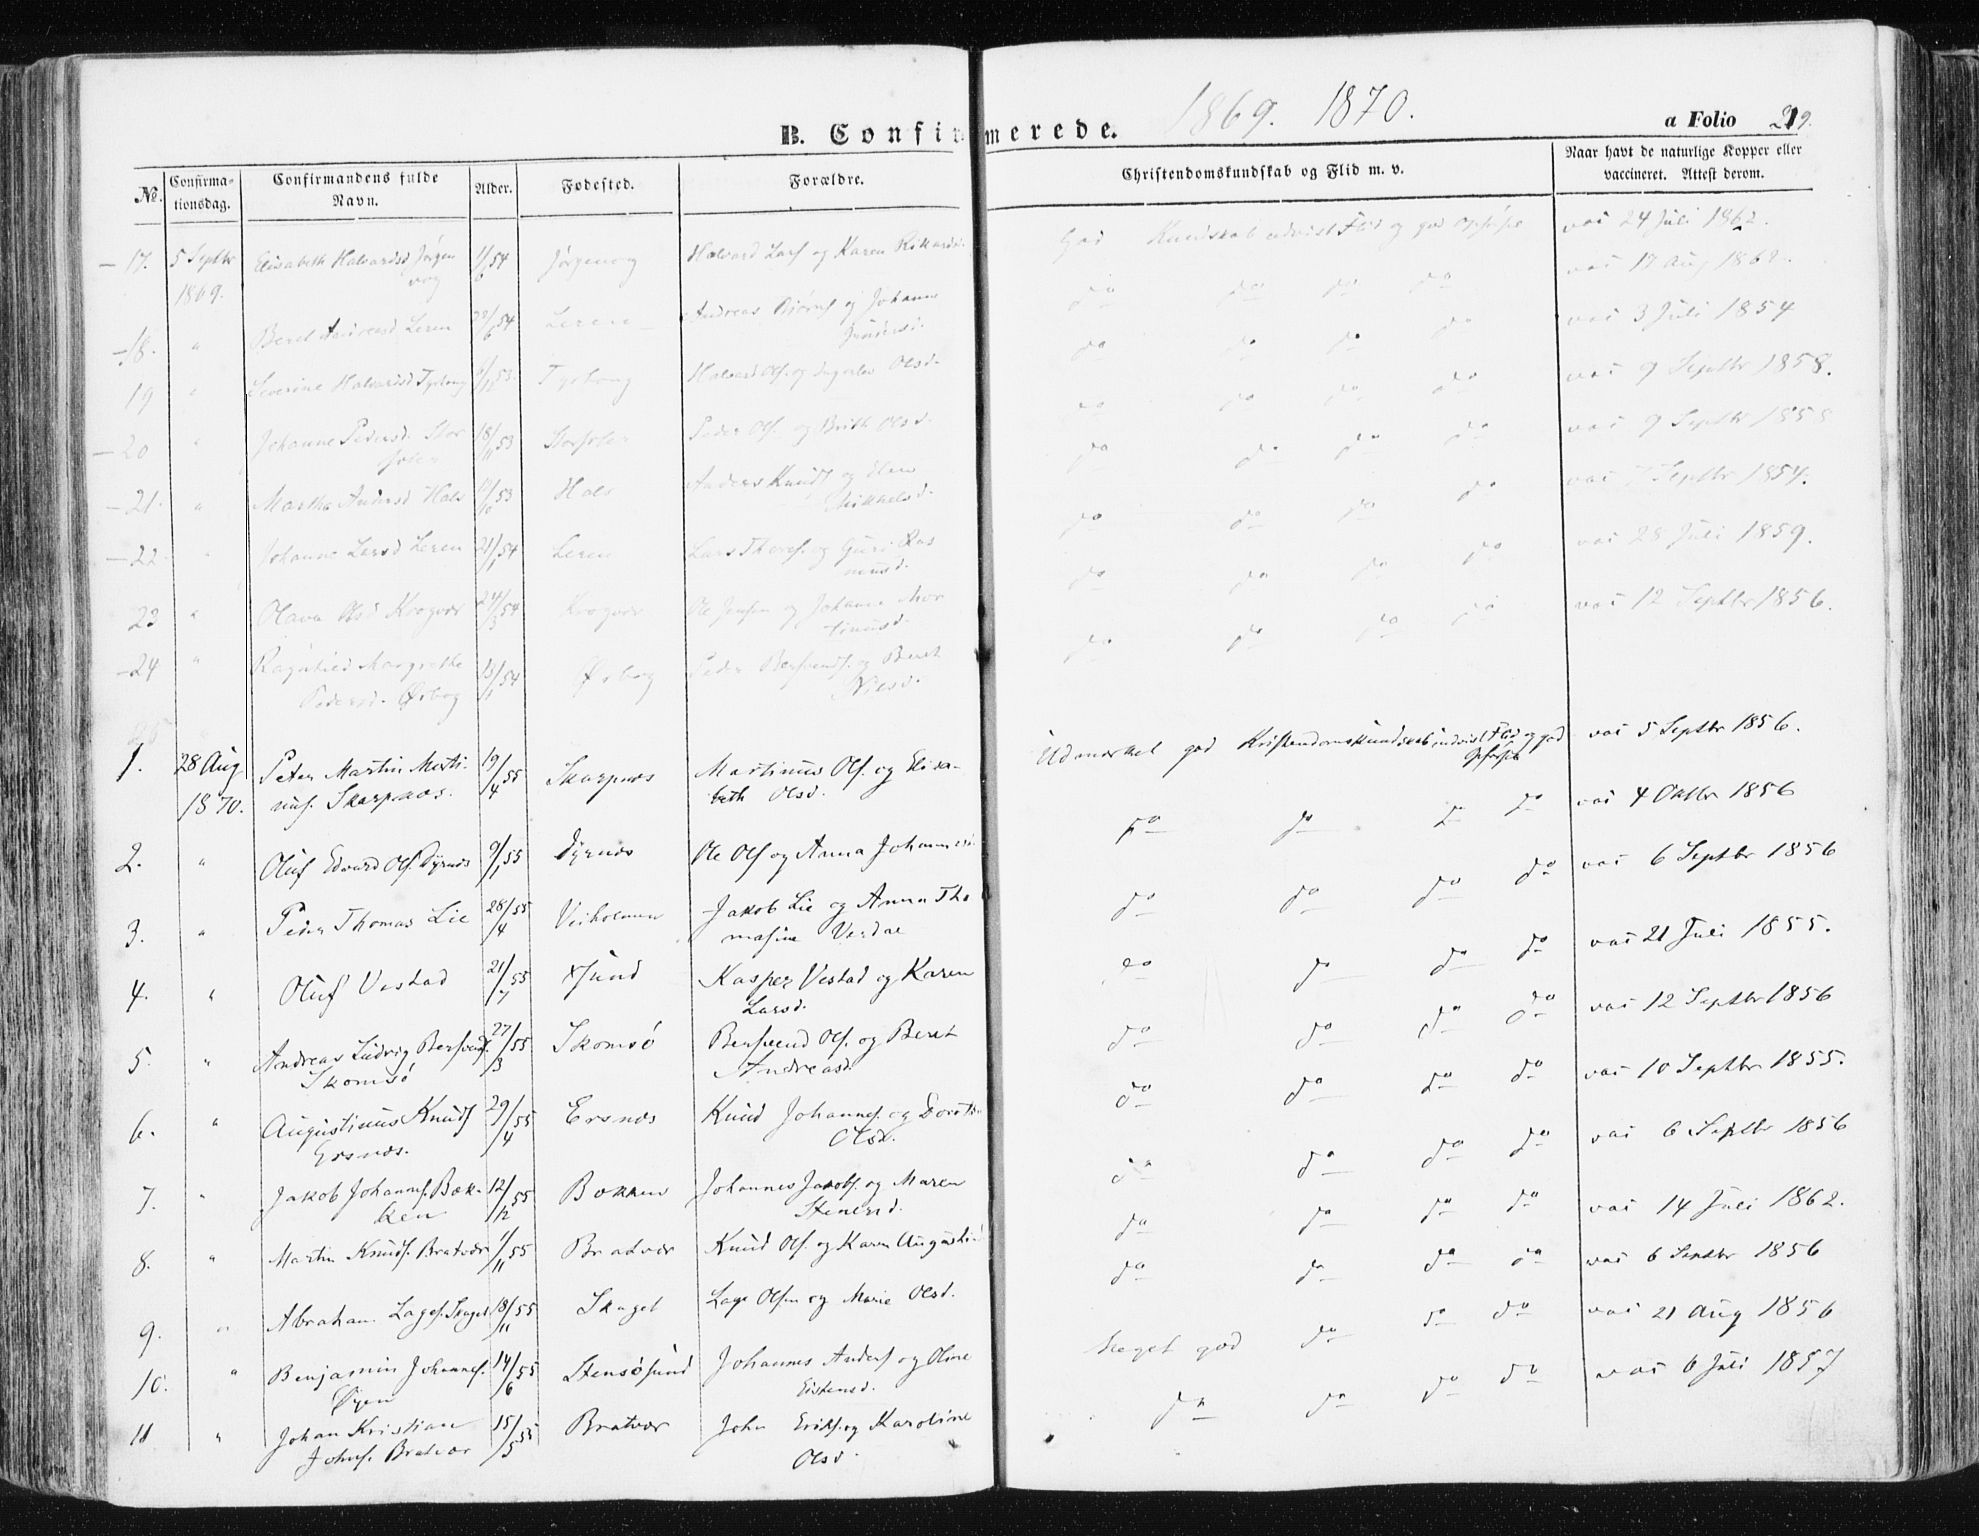 1869. 1870.
B. Confirmerede.
a Folio 219.
No.
Confirma-
tionsdag.
Confirmandens fulde
Navn.
Alder.
Fødested.
Forældre.
Christendomskundskab og Flid m. v.
Naar havt de naturlige Kopper eller
vaccineret. Attest derom.
17. 5 Septbr Elisabeth Halvardsd Jørgen 1/6 54 Jørgenvog Halvard Lars og Karen Rikardsd. God Kundskab udvist Flid og god Opførsel vac 24 Juli 1862.
1869. vog
18. " Beret Andreasd Leren 28/6 54 Leren Andreas og Johanne do do do do vac 17 Aug 1862.
19 " Severine Halvardsd 53 Halvard Ols. og Olsd. do do do do vac 3 Juli 1854
20 " Johanne Pedersd. Stor 18/11 53 Peder Ols. og Brith Olsd. do do do do vac 9 Septbr 1858.
21. " Martha Andersd Hals 53 Hals Anders Knuds og Elen do do do do vac 9 Septbr 1858
Mikkelsd.
22 " Johanne Larsd Leren 21/1 54 Leren Lars Thores. og Guri Ras do do do do vac 7 Septbr 1854.
musd.
23 " Olava Olsd Krogvær 24/3 54 Krogvær Ole Jensen og Johanne Mor do do do do vac 28 Juli 1859.
tinusd.
24 " Ragnhild Margrethe 13/1 54 Ørbog Peder Bersvends. og Beret do do do do vac 12 Septbr 1856.
Pedersd. Ørbog Nilsd.
25
1. 28 Aug Peter Martin Marti- 19/4 55 Skarpnæs Martinus Ols. og Elisa- Udmærket god Kristendomskundskab udvist Flid og god vac 5 Septbr 1856.
1870. nus. Skarpnæs. beth Olsd. Opførsel
2. " Oluf Edvard Ols. Dyrnæs 9/1 55 Dyrnæs Ole Ols og Anna Johannesd. do do do do vac 4 Oktbr 1856
3. " Peder Thomas Lie 28/4 55 Veiholmen Jakob Lie og Anna Tho do do do do vac 6 Septbr 1856
masine Verdal
4. " Oluf Vestad 21/7 55 Kasper Vestad og Karen do do do do vac 21 Juli 1855.
Larsd.
5. " Andreas Ludvig Bersvends. 27/3 55 Skomsö Bersvend Ols. og Beret do do do do vac 12 Septbr 1856
Skomsö Andreasd.
6. " Augustinus Knuds 29/4 55 Ersnæs Knud Johannes. og Dorothe do do do do vac 10 Septbr 1855.
Ersnæs. Olsd.
7. " Jakob Johannes. Bæk- 12/12 55 Bækken Johannes Jakobs. og Maren do do do do vac 6 Septbr 1856
ken Stenersd.
8. " Martin Knuds. Bratvær 1/11 55 Bratvær Knud Ols. og Karen Augustin do do do do vac 14 Juli 1862.
9. " Abraham Lages. Skaget 18/11 55 Skaget Lage Olsen og Marie Olsd. do do do do vac 6 Septbr 1856
10. " Benjamin Johannes. 14/6 55 Stensösund Johannes Anders og Oline Meget god do do do vac 21 Aug 1856
Öyen Eistensd.
11 " Johan Kristian 15/5 55 Bratvær John Eriks. og Karoline do do do do vac 6 Juli 1857
Johns. Bratvær Olsd.